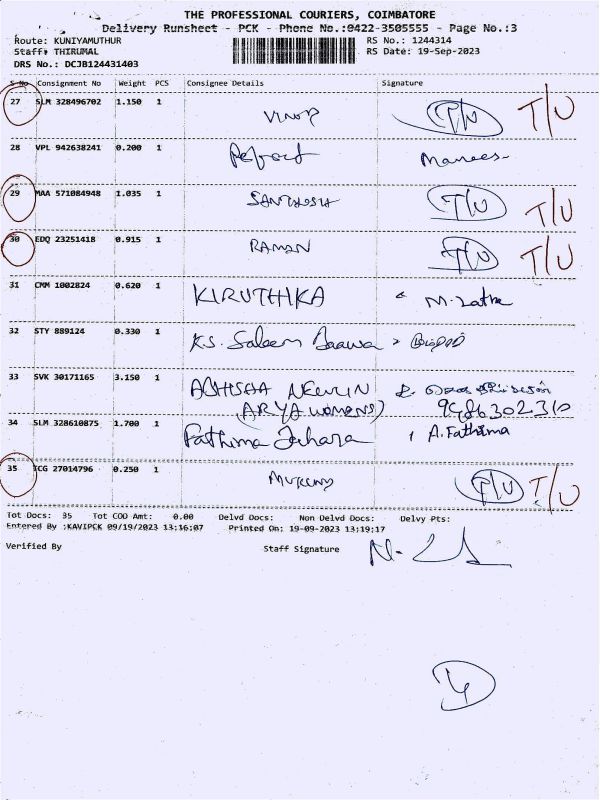 THE PROFESSIONAL COURIERS, COIMBATORE
Delivery Runsheet - PCK - Phone No.:0422-3505555 - Page No.:3
Route: KUNIYAMUTHUR RS No.: 1244314
Staff: THIRUMAL RS Date: 19-Sep-2023
DRS No.: DCJB124431403
S No Consignment No Weight PCS Consignee Details Signature
27 SLM 328496702 1.150 1 T/U T/U
28 VPL 942638241 0.200 1
29 MAA 571084948 1.035 1 SANTHOSH T/U T/U
30 EDQ 23251418 0.915 1 RAMAN T/U T/U
31 CMM 1002824 0.620 1 KIRUTHIKA M. Latha
32 STY 889124 0.330 1 K.S. Saleem
33 SVK 30171165 3.150 1 ABHISHA NEWLIN
(ARYA WOMENS) 9486302310
34 SLM 328610875 1.700 1 Fathima Jahara A. Fathima
35 TCG 27014796 0.250 1 T/U T/U
Tot Docs: 35 Tot COD Amt: 0.00 Delvd Docs: Non Delvd Docs: Delvy Pts:
Entered By :KAVIPCK 09/19/2023 13:16:07 Printed On: 19-09-2023 13:19:17
Verified By Staff Signature